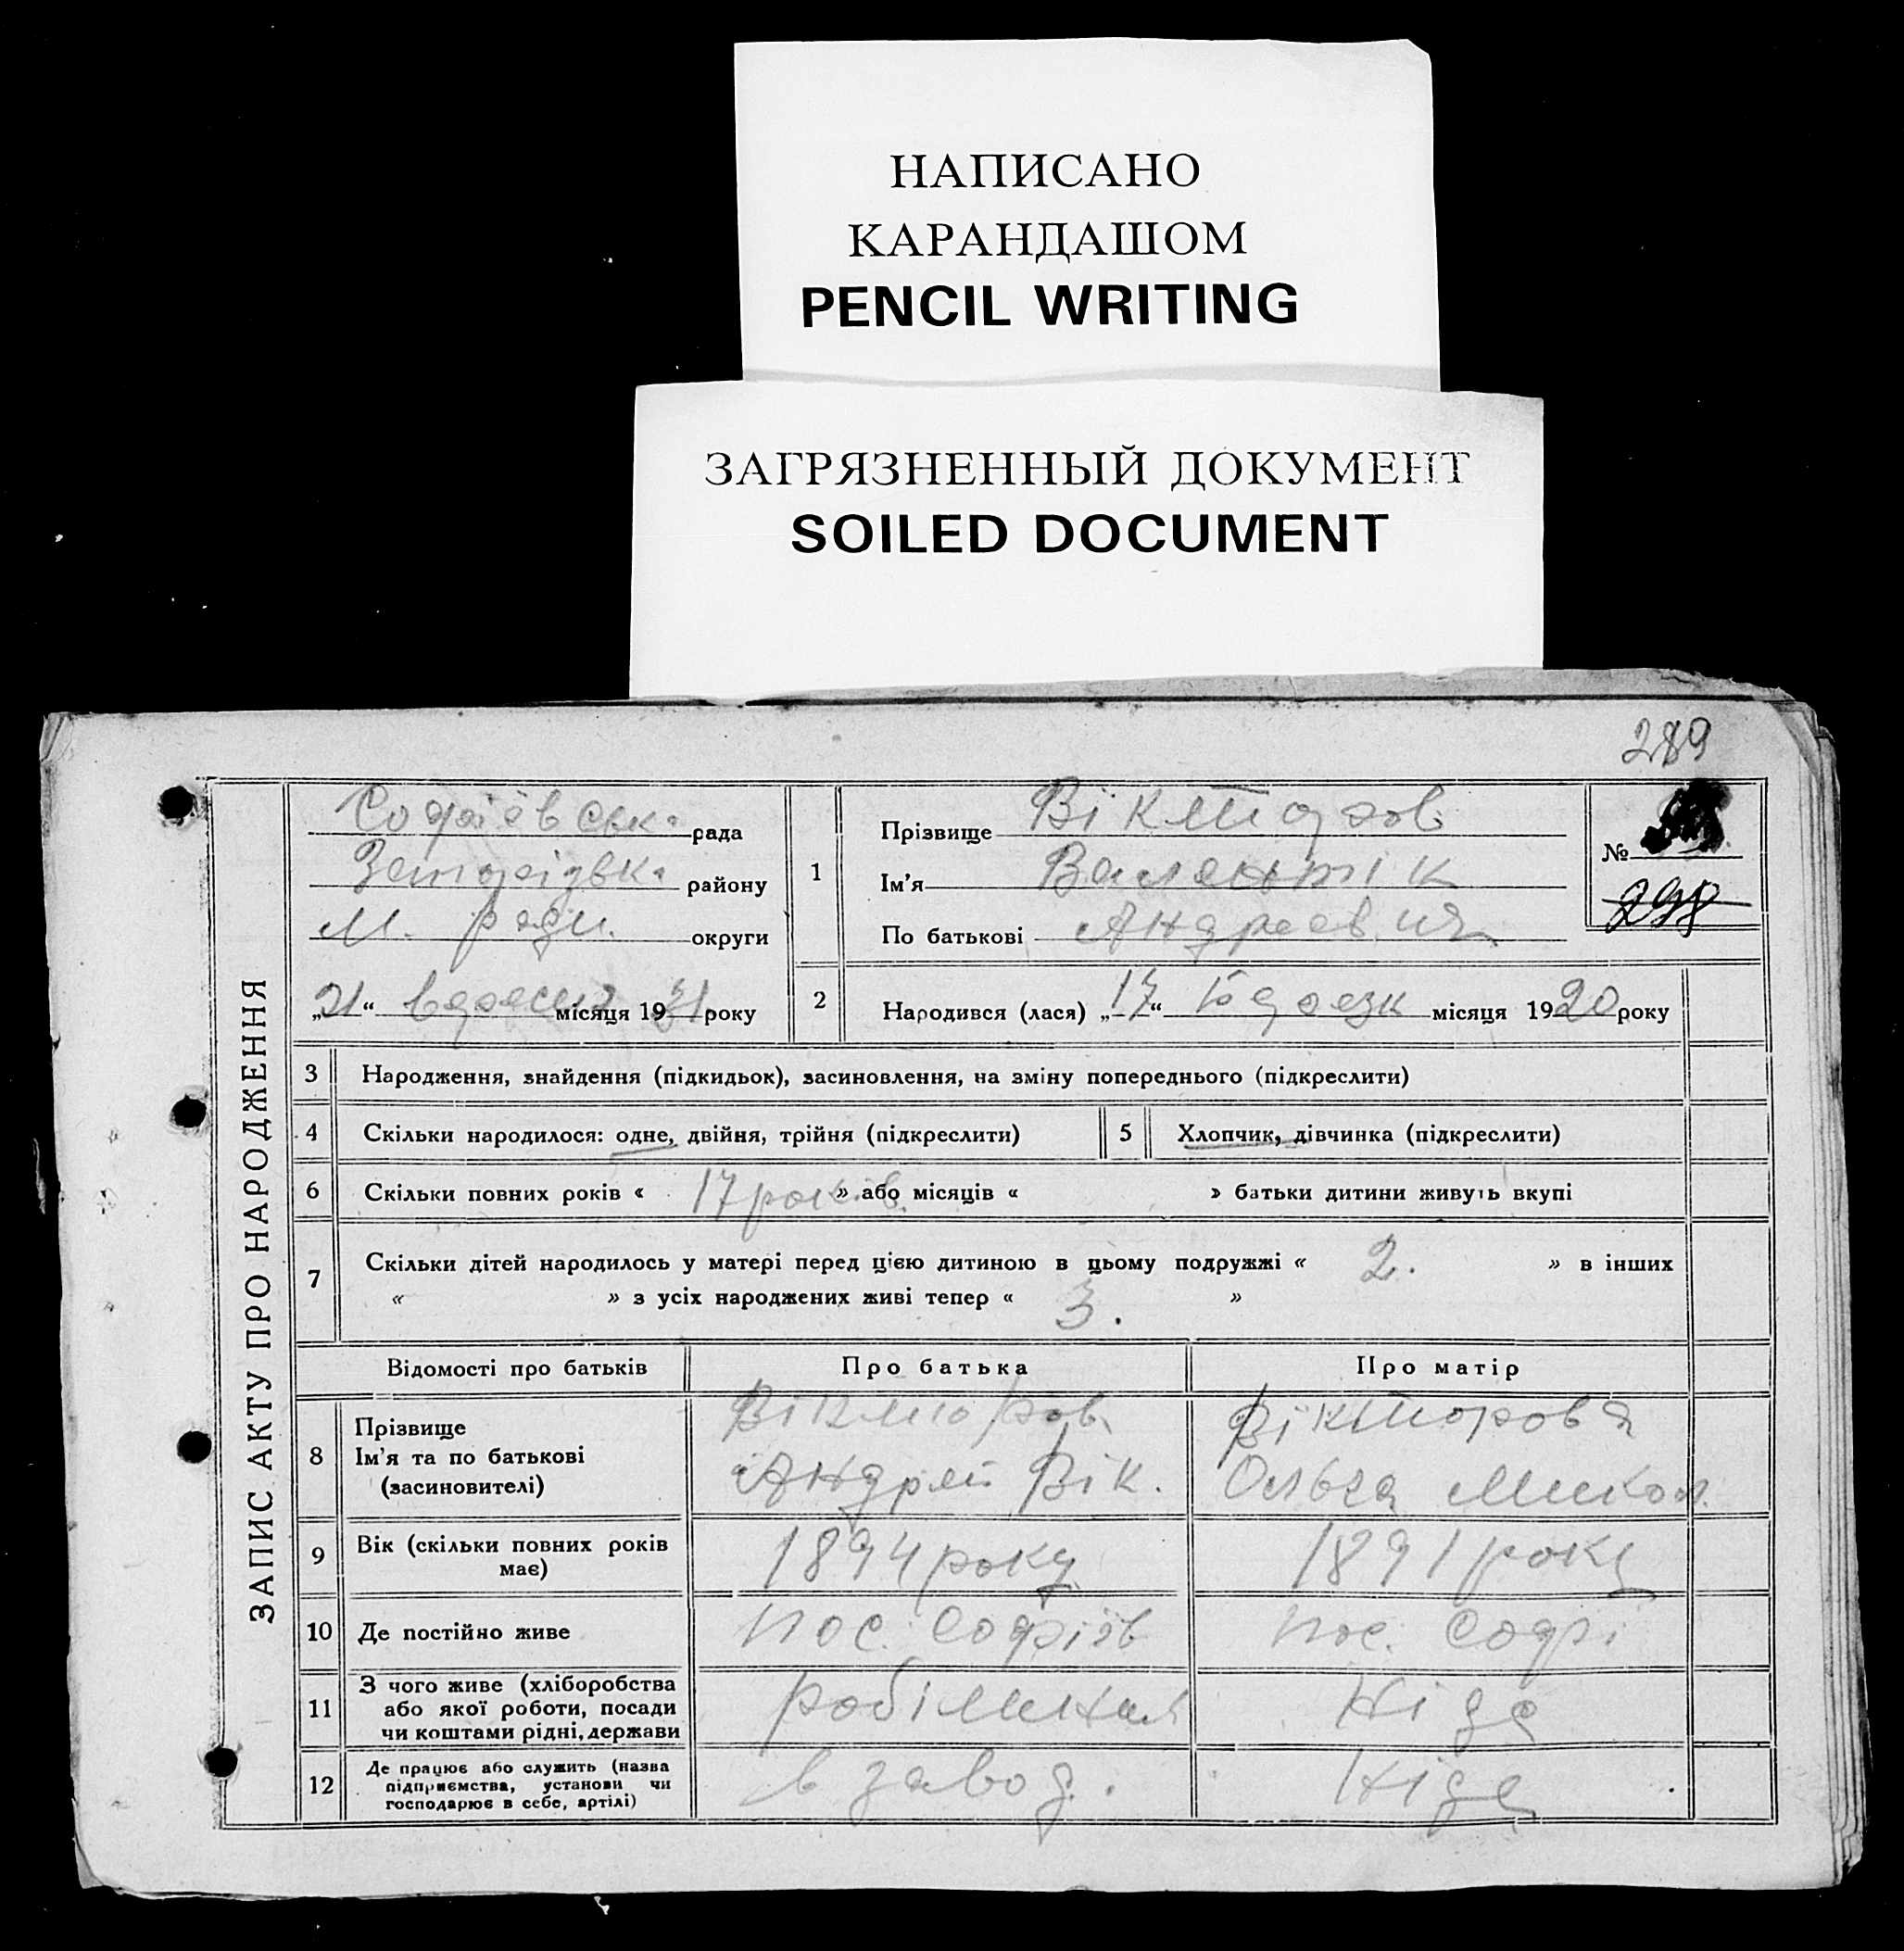 НАПИСАНО
КАРАНДАШОМ
PENCIL WRITING
ЗАГРЯЗНЕННЫЙ ДОКУМЕНТ
SOILED DOCUMENT
289
ЗАПИС АКТУ ПРО НАРОДЖЕННЯ
Софіівська рада
району
М. ради. округи
„21“ вересня місяця 1931 року
1
Прізвище Вікторов
Ім'я Валентік
По батькові Андреевич
№
298
2
Народився (лася) „17“ місяця 1920 року
3 Народження, знайдення (підкидьок), засиновлення, на зміну попереднього (підкреслити)
4 Скільки народилося: одне, двійня, трійня (підкреслити)
5 Хлопчик, дівчинка (підкреслити)
6 Скільки повних років « 17 років » або місяців « » батьки дитини живуть вкупі
7 Скільки дітей народилось у матері перед цією дитиною в цьому подружжі « 2. » в інших
« » з усіх народжених живі тепер « 3. »
Відомості про батьків Про батька Про матір
8 Прізвище
Ім'я та по батькові
(засиновителі)
Вікторов
Андрей Вік.
Вікторова
Ольга Микол.
9 Вік (скільки повних років
має)
1894 року
1891 року
10 Де постійно живе
пос. Софіів
пос. Софі
11 З чого живе (хліборобства
або якої роботи, посади
чи коштами рідні, держави
робітник
Ніде
12 Де працює або служить (назва
підприємства, установи чи
господарює в себе, артілі)
в завод.
Ніде